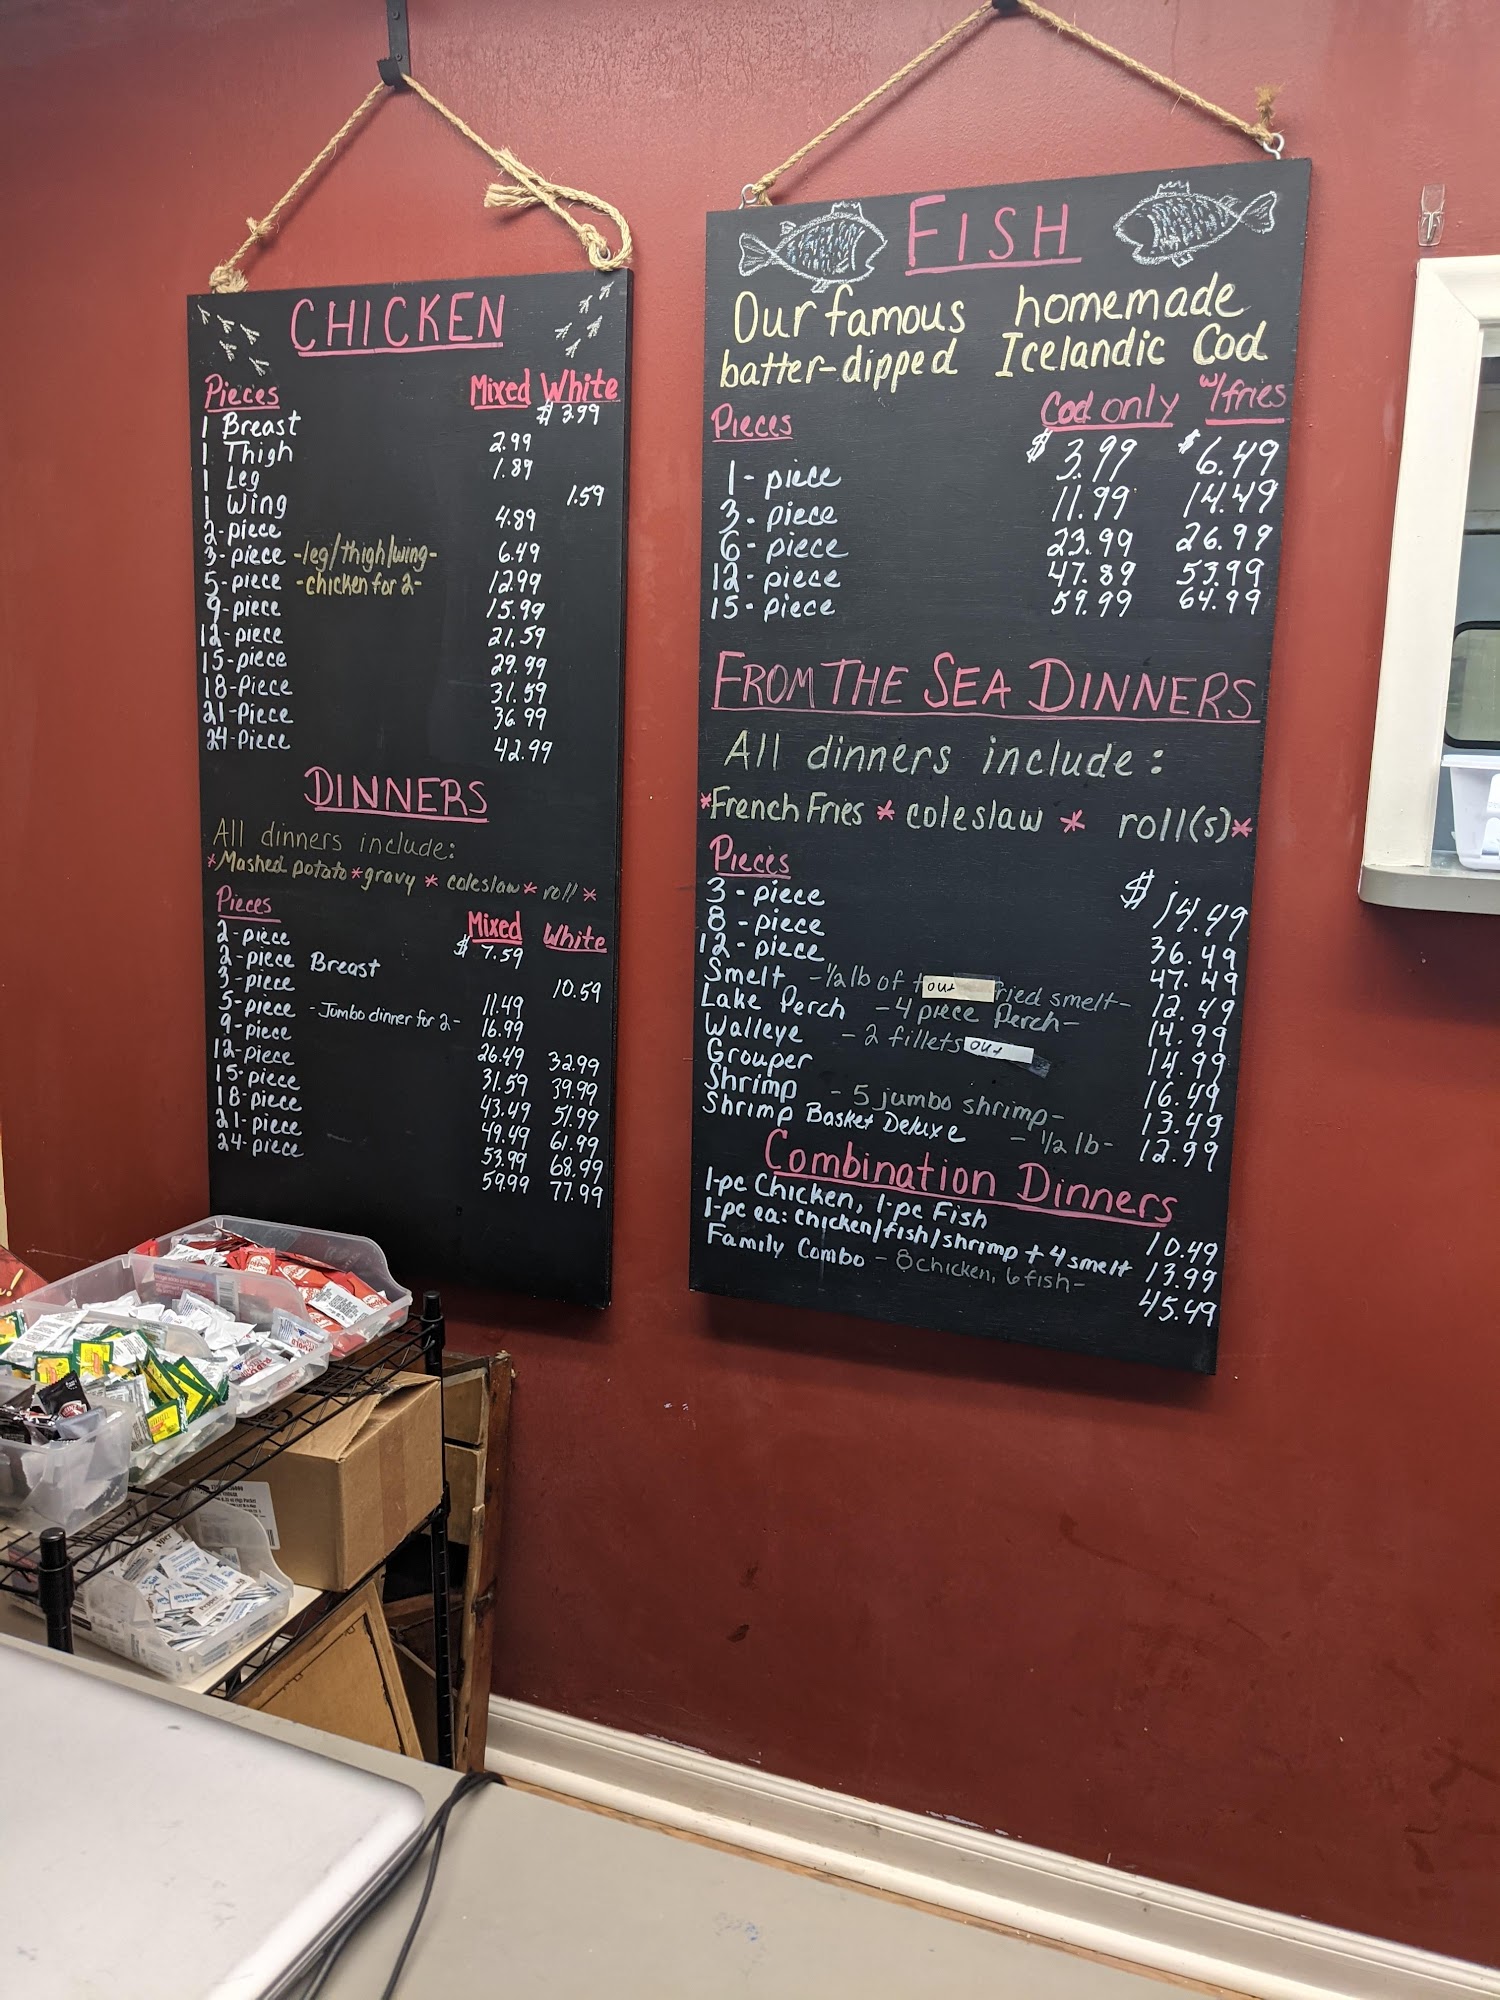 CHICKEN
Pieces Mixed White
1 Breast $3.99
1 Thigh 2.99
1 Leg 1.89
1 Wing 1.59
2-piece 4.89
3-piece -leg/thigh/wing- 6.49
5-piece -chicken for 2- 12.99
9-piece 15.99
12-piece 21.59
15-piece 29.99
18-Piece 31.59
21-Piece 36.99
24-Piece 42.99
DINNERS
All dinners include:
*Mashed potato *gravy * coleslaw * roll *
Pieces Mixed White
2-piece $7.59
2-piece Breast 10.59
3-piece 11.49
5-piece -Jumbo dinner for 2- 16.99
9-piece 26.49 32.99
12-piece 31.59 39.99
15-piece 43.49 51.99
18-piece 49.49 61.99
21-piece 53.99 68.99
24-piece 59.99 77.99
FISH
Our famous homemade
batter-dipped Icelandic Cod
Pieces Cod only w/fries
1-piece $3.99 $6.49
3-piece 11.99 14.49
6-piece 23.99 26.99
12-piece 47.89 53.99
15-piece 59.99 64.99
FROM THE SEA DINNERS
All dinners include:
*French Fries * coleslaw * roll(s)*
Pieces
3-piece $14.49
8-piece 36.49
12-piece 47.49
Smelt -1/2 lb of out fried smelt- 12.49
Lake Perch -4 piece Perch- 14.99
Walleye -2 fillets out 14.99
Grouper 16.49
Shrimp -5 jumbo shrimp- 13.49
Shrimp Basket Deluxe -1/2 lb- 12.99
Combination Dinners
1-pc Chicken, 1-pc Fish 10.49
1-pc ea: chicken/fish/shrimp + 4 smelt 13.99
Family Combo -8 chicken, 6 fish- 45.49